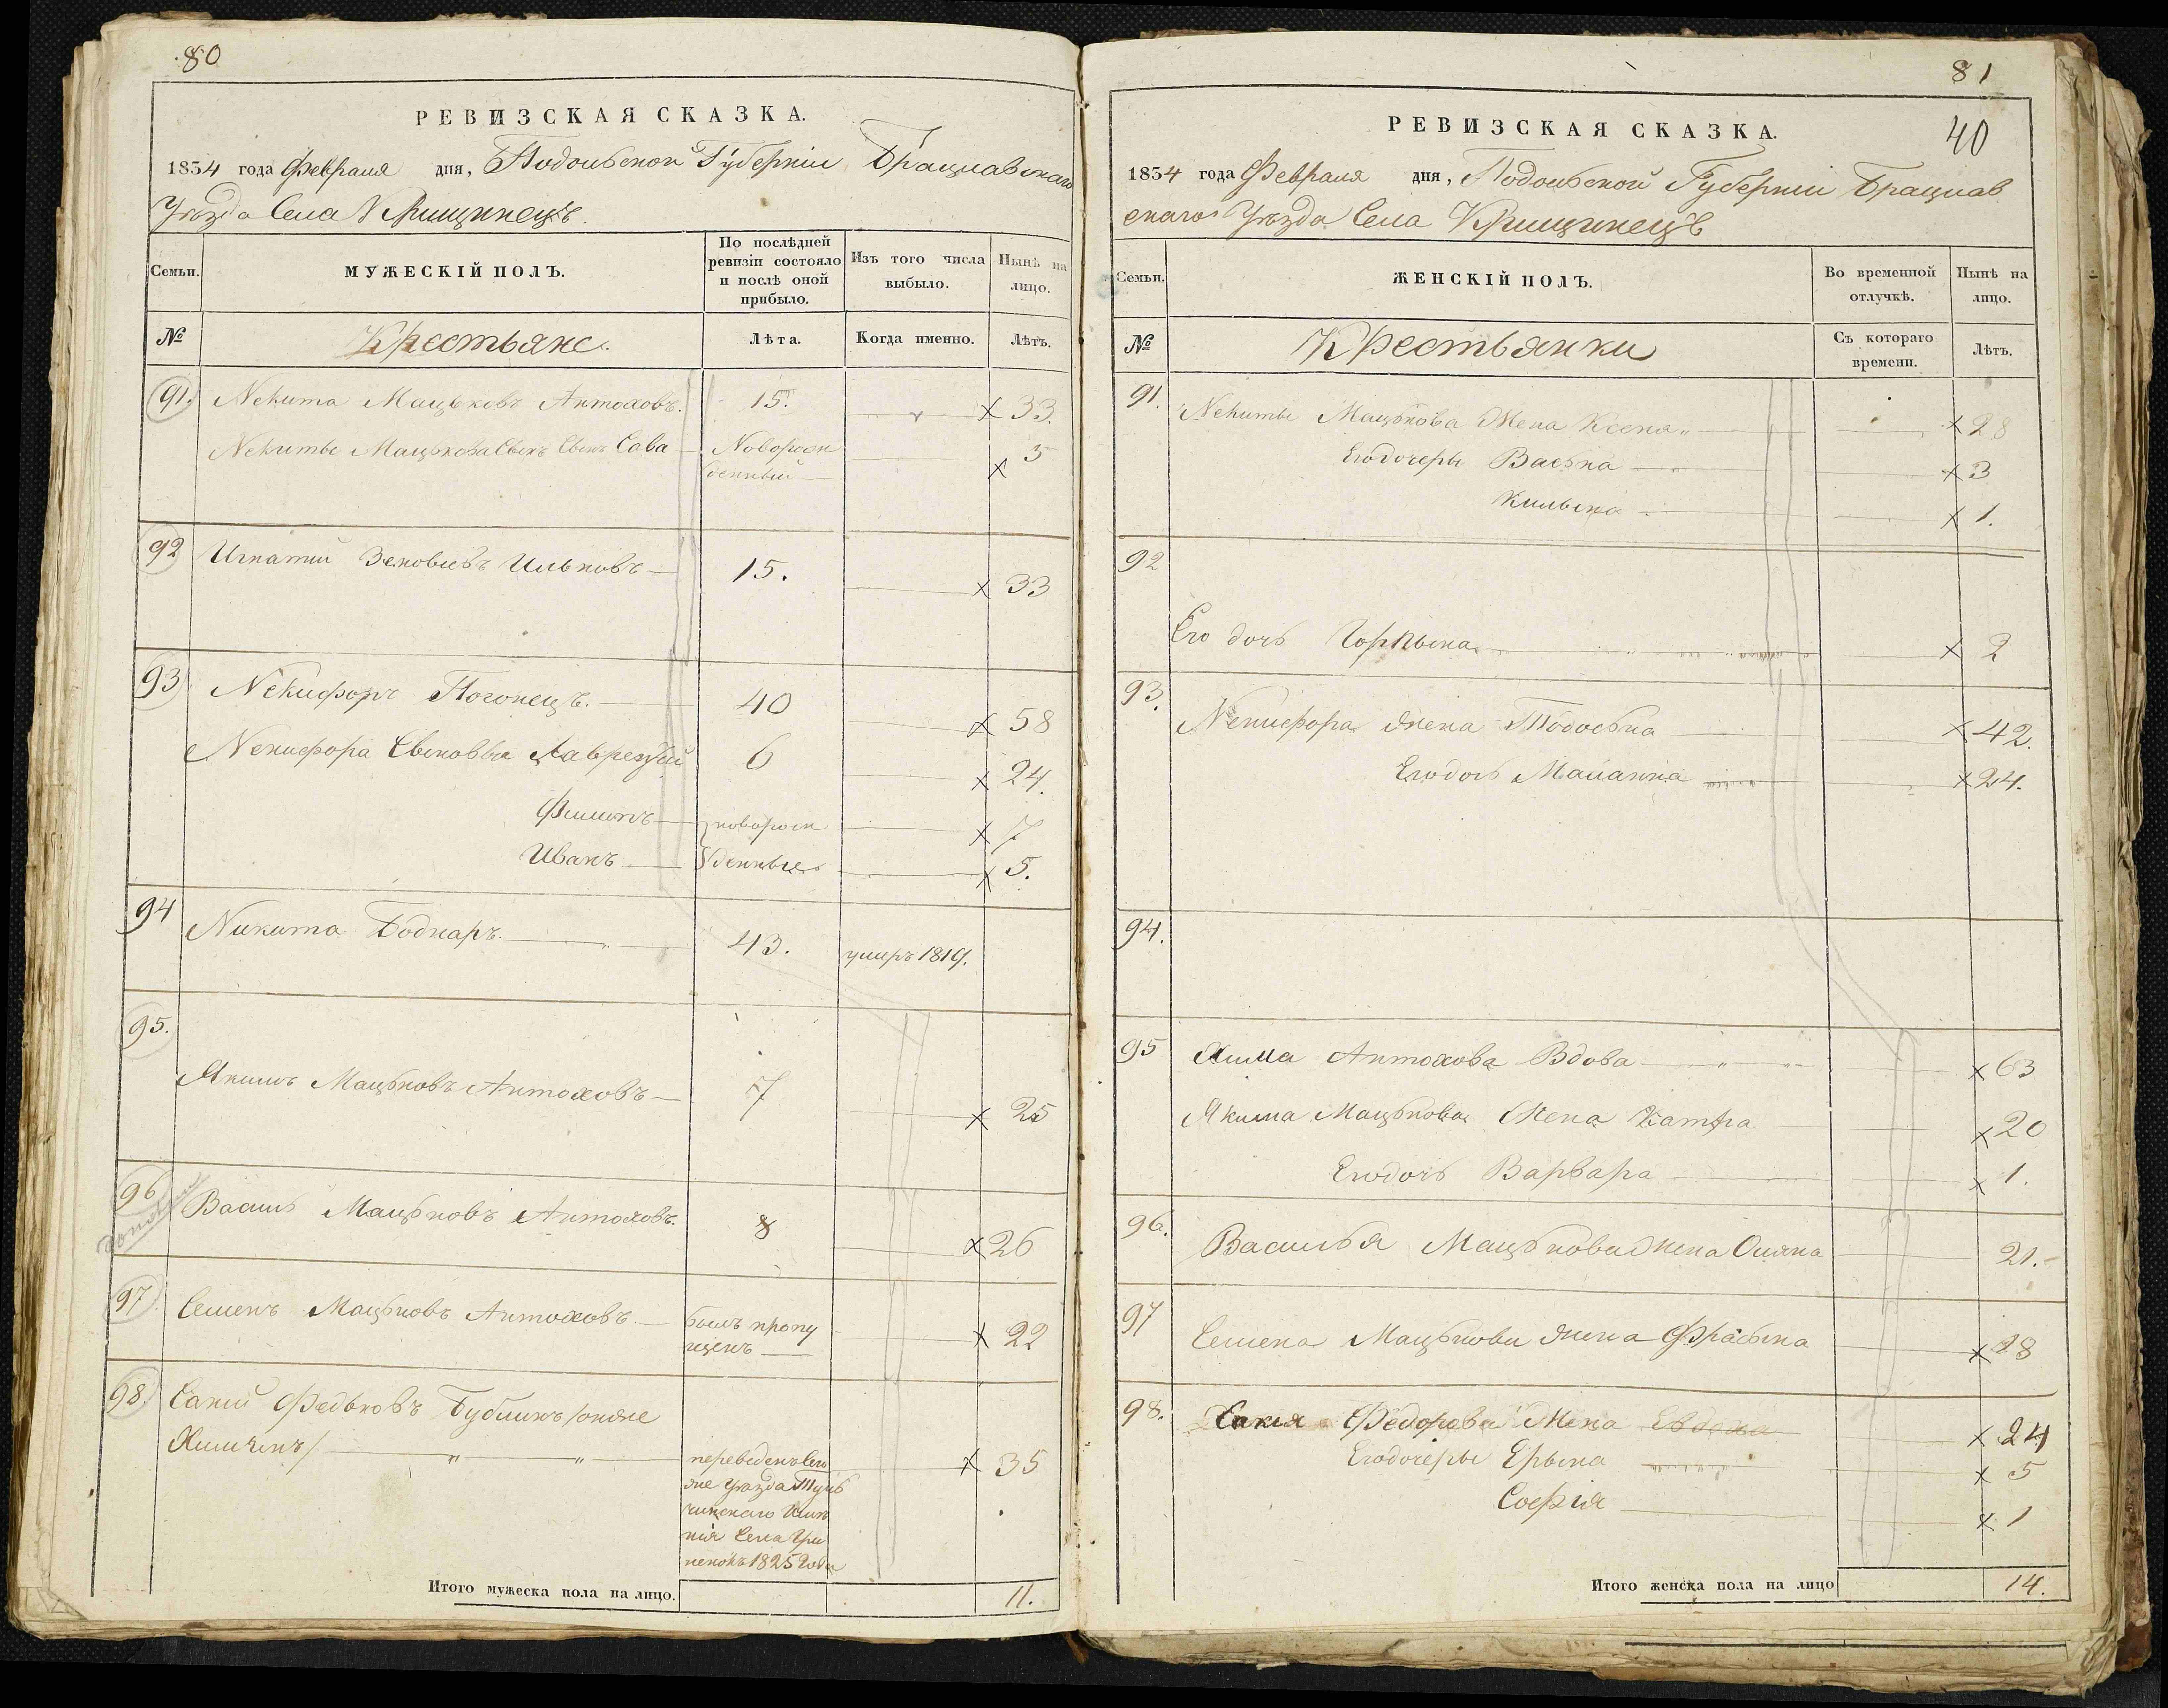 80
РЕВИЗСКАЯ СКАЗКА.
1834 года Февраля дня, Подольской Губерніи Брацлавскаго
Уѣзда Села Крищинецъ
Семьи.
МУЖЕСКІЙ ПОЛЪ.
По послѣдней
ревизіи состояло
и послѣ оной
прибыло.
Изъ того числа
выбыло.
Нынѣ на
лицо.
№
Крестьяне.
Лѣта.
Когда именно.
Лѣтъ.
91. Некита Мацьковъ Антоховъ. 15. х 33.
Некиты Мацькова Сынъ Сава Новорож х 5
денный
92 Игнатій Зеновіевъ Ильковъ 15. х 33
93 Некифоръ Погонецъ. 40 х 58
Некифора Сыновья 6 х 24.
Филипъ новорож х 7
Иванъ денные х 5.
94 Никита Боднаръ 43. умиръ 1819.
95.
Якимъ Мацьковъ Антоховъ 7 х 25
96 Василь Мацьковъ Антоховъ. 8 х 26
97 Семенъ Мацьковъ Антоховъ былъ пропу х 22
щенъ
98. Сакій Федьковъ Бубликъ /онже
переведенъ х 35
же уѣзда Туль
чинскаго Имѣ
нія Села
1825 года
Итого мужеска пола на лицо. 11.
81
40
РЕВИЗСКАЯ СКАЗКА.
1834 года Февраля дня, Подольской Губерніи Брацлав
скаго Уѣзда Села Крищинецъ
Семьи.
ЖЕНСКІЙ ПОЛЪ.
Во временной
отлучкѣ.
Нынѣ на
лицо.
№
Крестьянки
Съ котораго
времени.
Лѣтъ.
91. Некиты Мацькова Жена Ксеня х 28
Его дочеры Васька х 3
х 1.
92
Его дочь Горпына х 2
93. Некифора жена Тодоська х 42.
Его дочь Маланка х 24.
94.
95 Химa Антохова Вдова х 63
Якима Мацькова Жена Катра х 20
Его дочь Варвара х 1.
96. Василья Мацькова жена Оляна 21.
97 Семена Мацькова жена Фрасына х 18
98. Сакія Федорова Жена Евдоха х 24
Его дочеры Ерына х 5
Софія х 1
Итого женска пола на лицо 14.